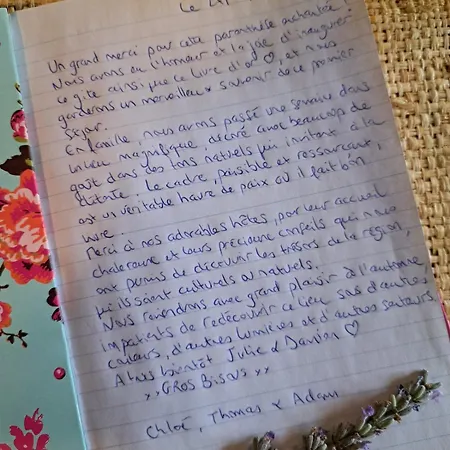 Le
Un grand merci pour cette parenthèse enchantée !
Nous avons eu l'honneur et la joie d'inaugurer
ce gîte ainsi que ce livre d'or ♡, et nous
garderons un merveilleux souvenir de ce premier
séjour.
En famille, nous avons passé une semaine dans
un lieu magnifique, décoré avec beaucoup de
goût dans des tons naturels qui invitent à la
détente. Le cadre, paisible et ressourçant,
est un véritable havre de paix où il fait bon
vivre.
Merci à nos adorables hôtes, pour leur accueil
chaleureux et leurs précieux conseils qui nous
ont permis de découvrir les trésors de la région,
qu'ils soient culturels ou naturels.
Nous reviendrons avec grand plaisir à l'automne
impatients de redécouvrir ce lieu sous d'autres
couleurs, d'autres lumières et d'autres saveurs.
A très bientôt Julie & Damien ♡
xx GROS BISOUS xx
Chloé, Thomas & Adam